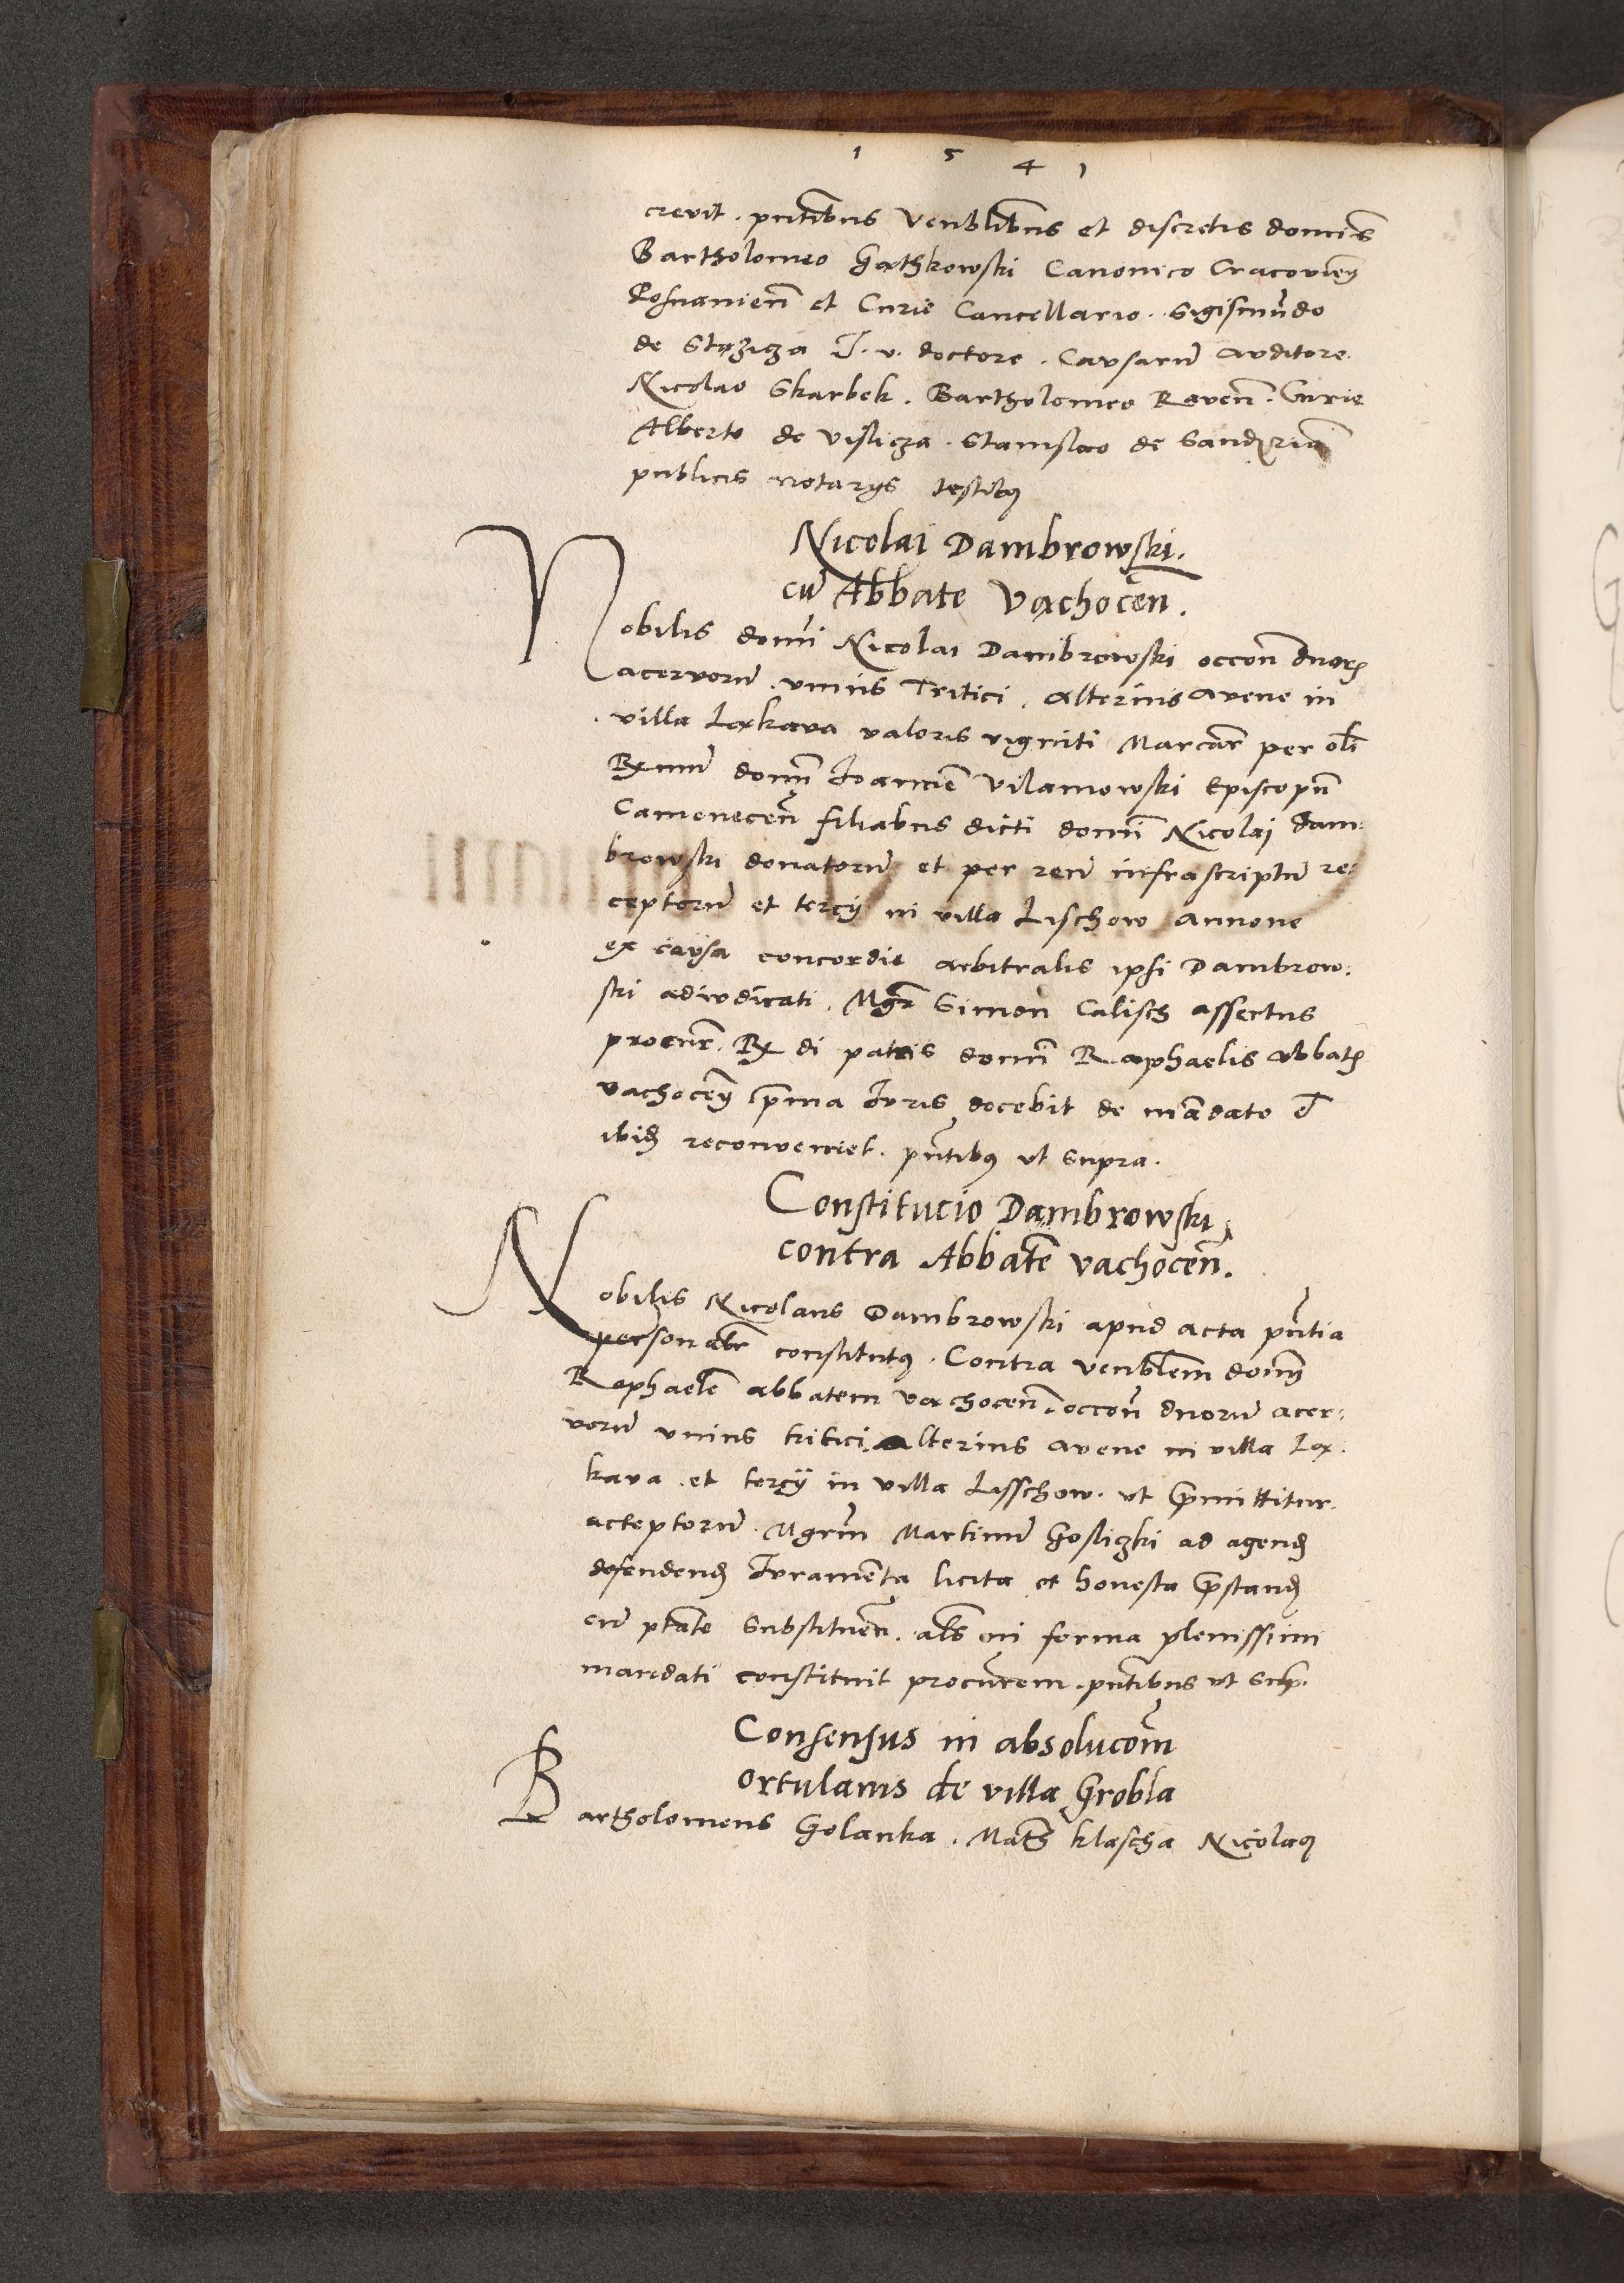 1 5 4 1
crevit . pntibus venblibus et discretis dominis
Bartholomeo Gathkowski Canonico Cracovien
Posnanien et Curie Cancellario . Sigismundo
de Stezicza J. v. doctore . Causarum auditore
Nicolao Skarbek . Bartholomeo Raven . Curie
Alberto de Vislicza . Stanislao de Sandomiria
publicis notarys testibus
Nicolai Dambrowski .
cum Abbate Vachocen .
Nobilis domini Nicolai Dambrowski occon duorum
acervorum . unius Tritici . alterius avene in
villa Laxkava valoris viginti Marcar per olim
Rxmum domum Joannem Vilamowski Episcopum
Camenecen filiabus dicti domini Nicolaj Dam:
browski donatorum et per reum infrascriptum re:
ceptorum et tercÿ in villa Lischow annone
ex causa concordie arbitralis ipsi Dambrow:
ski adiudicati . Mgr Simon Calisch assertus
procur . Rx di patris domini Raphaelis abbatis
vachocen prima Juris docebit de mandato et
ibidem reconveniet . pntibus ut supra .
Constitucio Dambrowski
contra Abbatem vachocen .
Nobilis Nicolaus Dambrowski apud acta pntia
personalr constitutus . Contra venblem domum
Raphaelem abbatem vachocen . occon duorum acer:
vorum unius tritici alterius avene in villa Lax:
kava . et tercÿ in villa Lisschow . ut premittitur .
acceptorum . Mgrum Martinum Goslizki ad agend
defendend Juramenta licita et honesta prestand
cum ptate substituen . als in forma plenissimi
mandati constituit procurem . pntibus ut sup .
Consensus in absolucom
ortulanis de villa Grobla
Bartholomeus Golanka . Maths Klascha Nicolaus